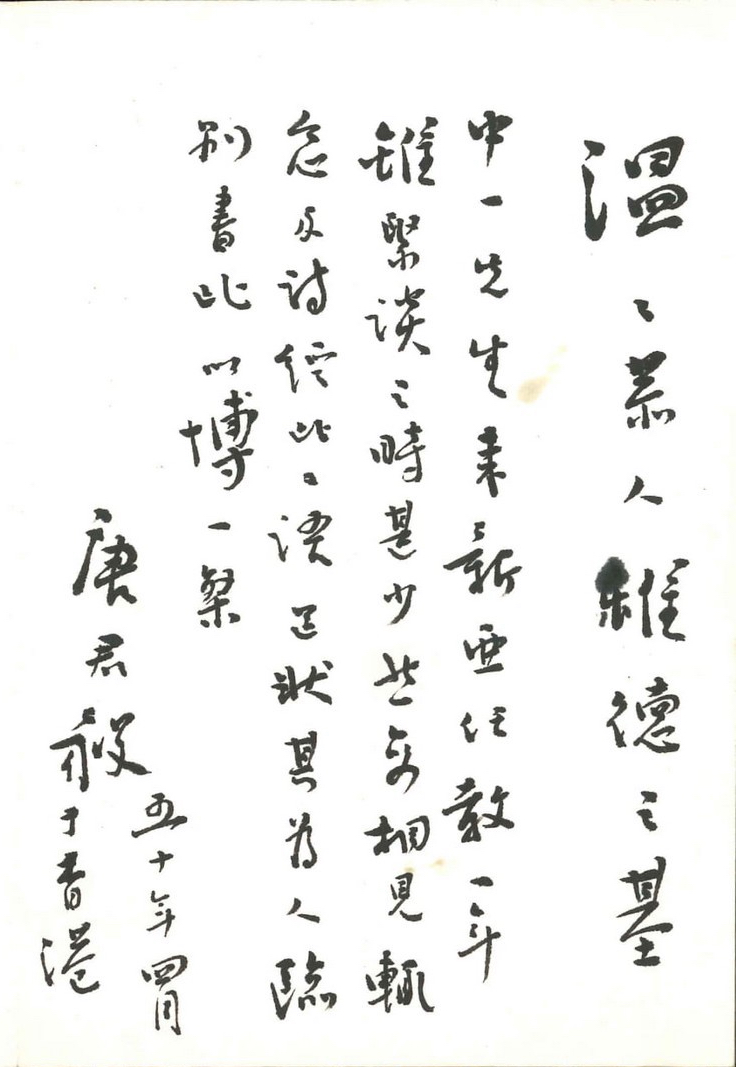 溫〻恭人維德之基
中一先生來新亞任教一年
雖緊談之時甚少然每相見輒
念及詩經此〻語足狀其為人臨
別書此以博一粲
唐君毅于香港
五十年四月